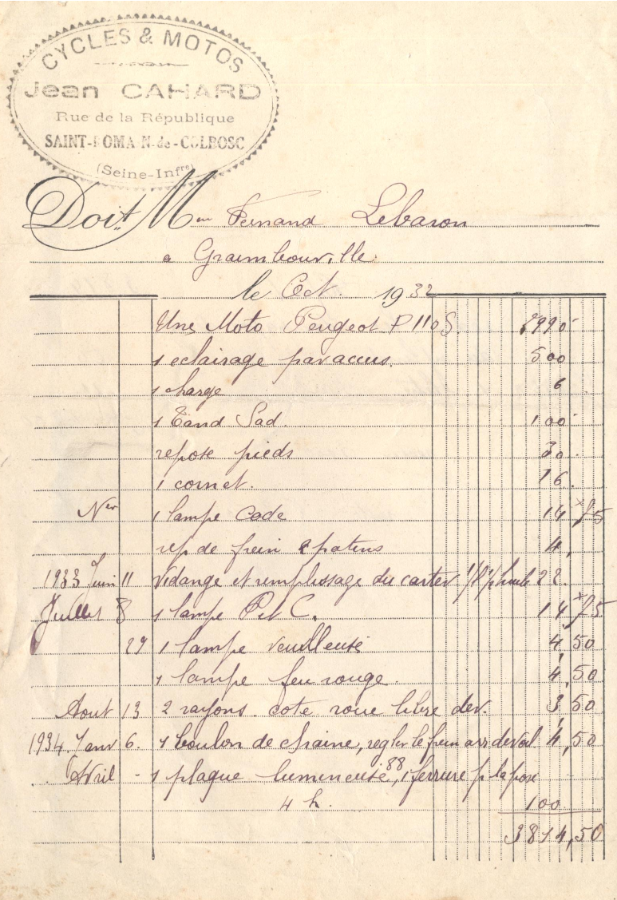 CYCLES & MOTOS
Jean CAHARD
Rue de la République
SAINT-ROMAIN-de-COLBOSC
(Seine-Infre)
Doit M Fernand Lebaron
a Graimbouville
le Oct. 1932
Une Moto Peugeot P110S. 2990
1 eclairage par accus. 500
1 charge 6
1 Tand Sad. 100
repose pieds 30
1 cornet. 16.
Ner 1 lampe Code 14 75
rep de frein patins 4,
1933 Juin 11 Vidange et remplissage du carter 22.
Juillet 8 1 lampe P et C. 14 75
29 1 lampe veulleuse 4,50
1 lampe feu rouge. 4,50
Aout 13 2 rayons cote roue libre der. 3,50
1934 Janv 6. 1 boulon de chaine, regler le frein arr 4,50
Avril - 1 plaque lumineuse, 88, 1 ferrure p la pose
4 h. 100
3814,50